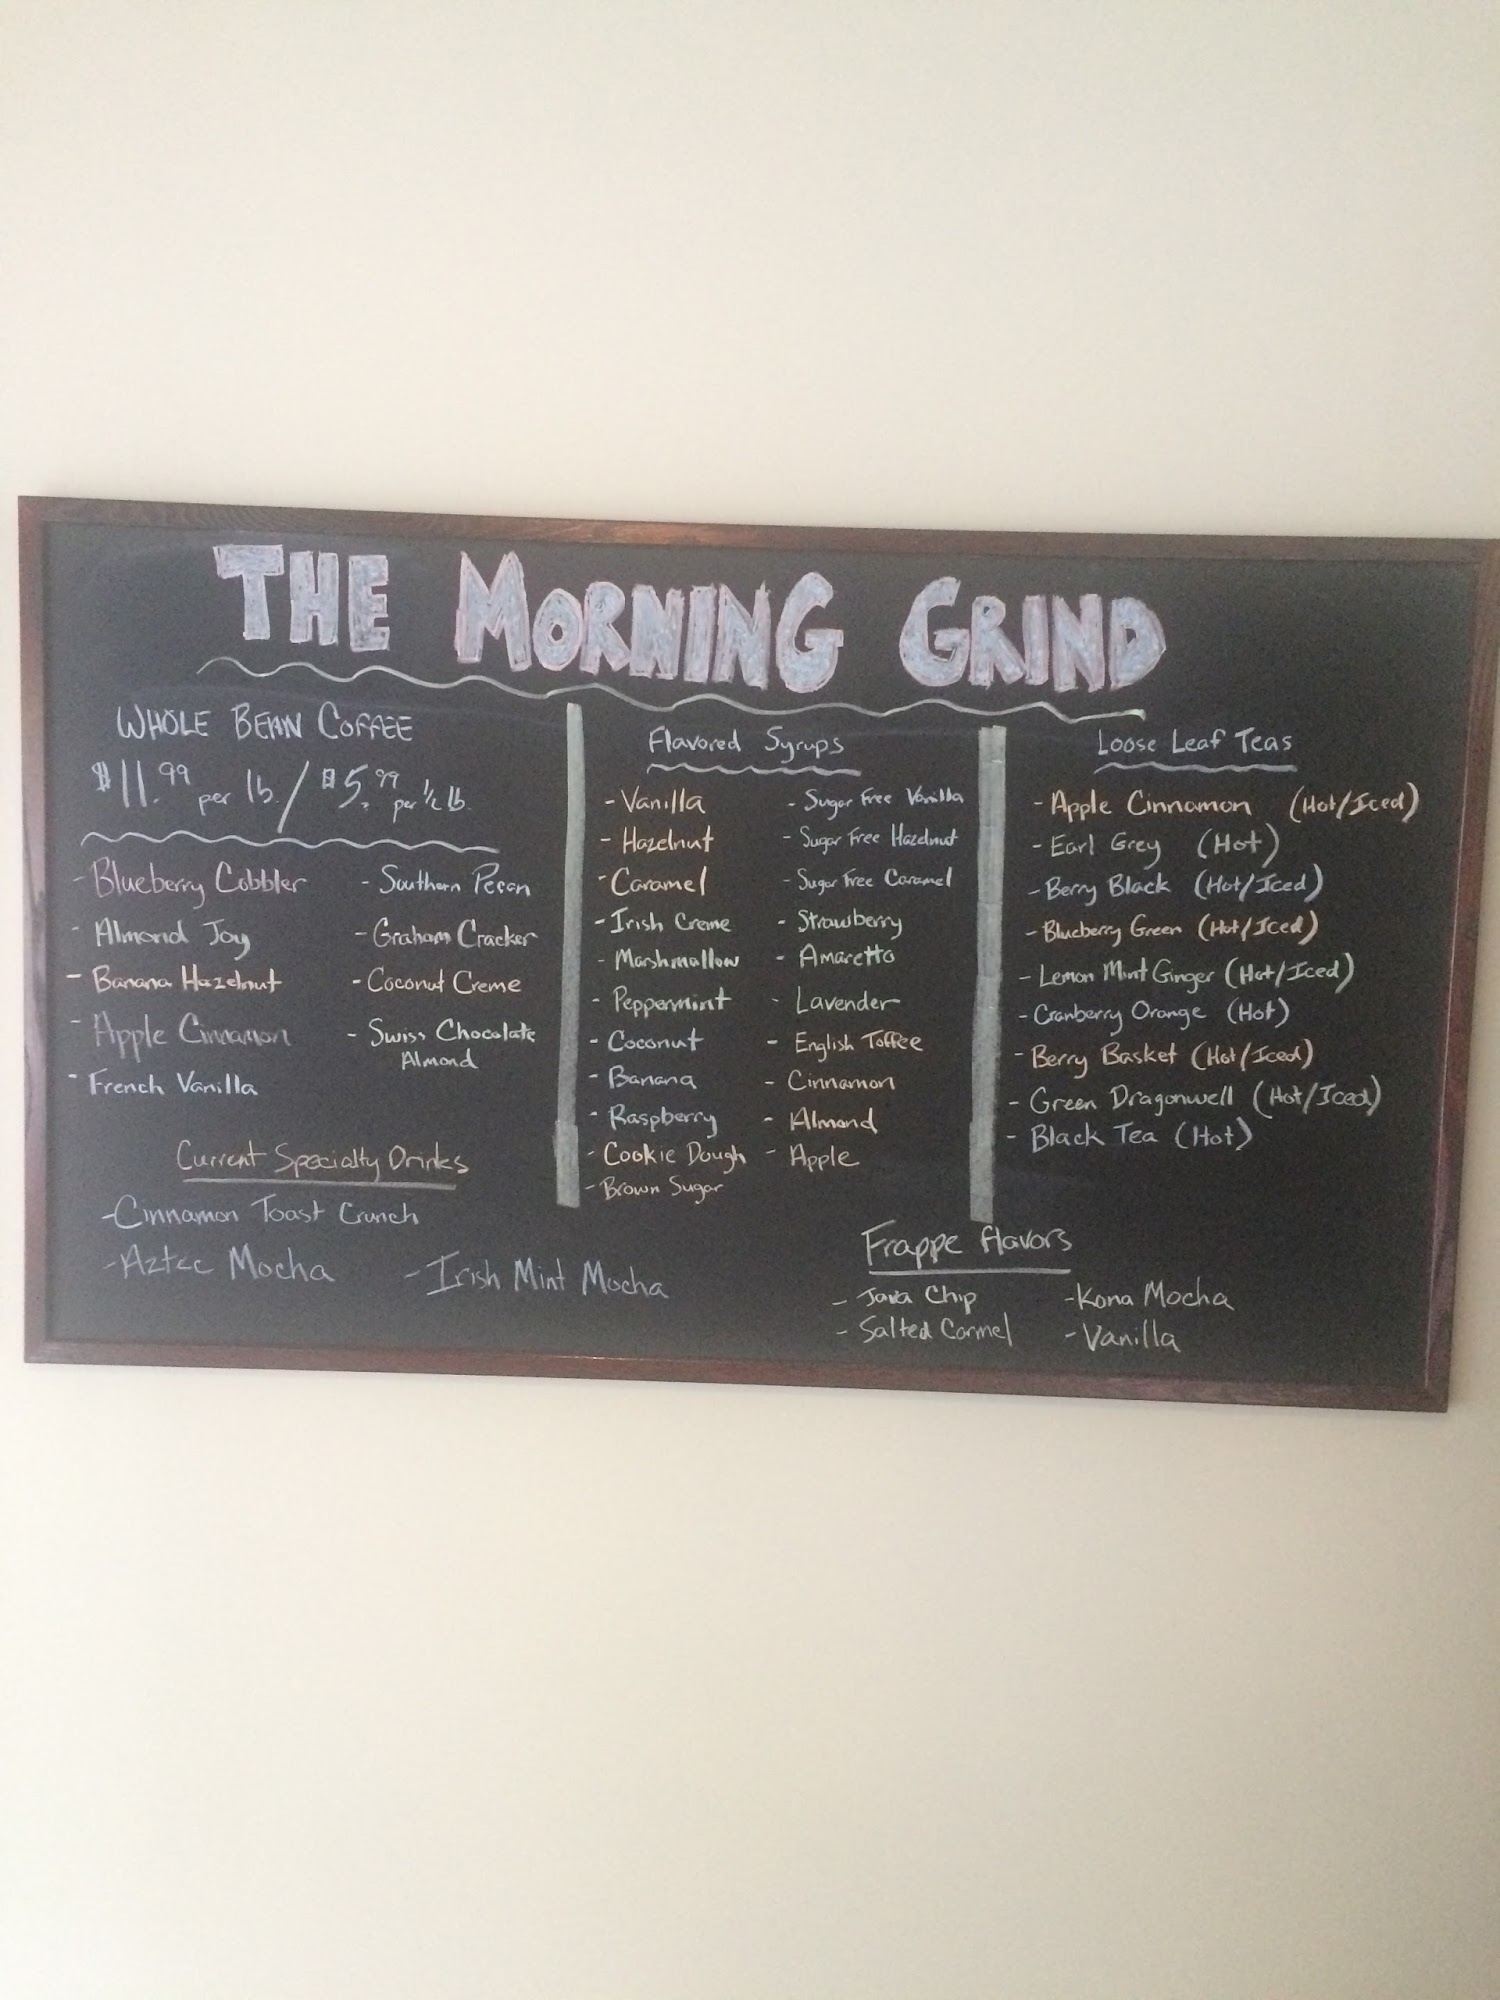 THE MORNING GRIND
WHOLE BEAN COFFEE
$11.99 per lb. / $5.99 per 1/2 lb.
- Blueberry Cobbler
- Almond Joy
- Banana Hazelnut
- Apple Cinnamon
- French Vanilla
- Southern Pecan
- Graham Cracker
- Coconut Creme
- Swiss Chocolate
Almond
Current Specialty Drinks
- Cinnamon Toast Crunch
- Aztec Mocha
- Irish Mint Mocha
Flavored Syrups
- Vanilla
- Hazelnut
- Caramel
- Irish Creme
- Marshmallow
- Peppermint
- Coconut
- Banana
- Raspberry
- Cookie Dough
- Brown Sugar
- Sugar Free Vanilla
- Sugar Free Hazelnut
- Sugar Free Caramel
- Strawberry
- Amaretto
- Lavender
- English Toffee
- Cinnamon
- Almond
- Apple
Loose Leaf Teas
- Apple Cinnamon (Hot/Iced)
- Earl Grey (Hot)
- Berry Black (Hot/Iced)
- Blueberry Green (Hot/Iced)
- Lemon Mint Ginger (Hot/Iced)
- Cranberry Orange (Hot)
- Berry Basket (Hot/Iced)
- Green Dragonwell (Hot/Iced)
- Black Tea (Hot)
Frappe flavors
- Java Chip
- Salted Carmel
- Kona Mocha
- Vanilla